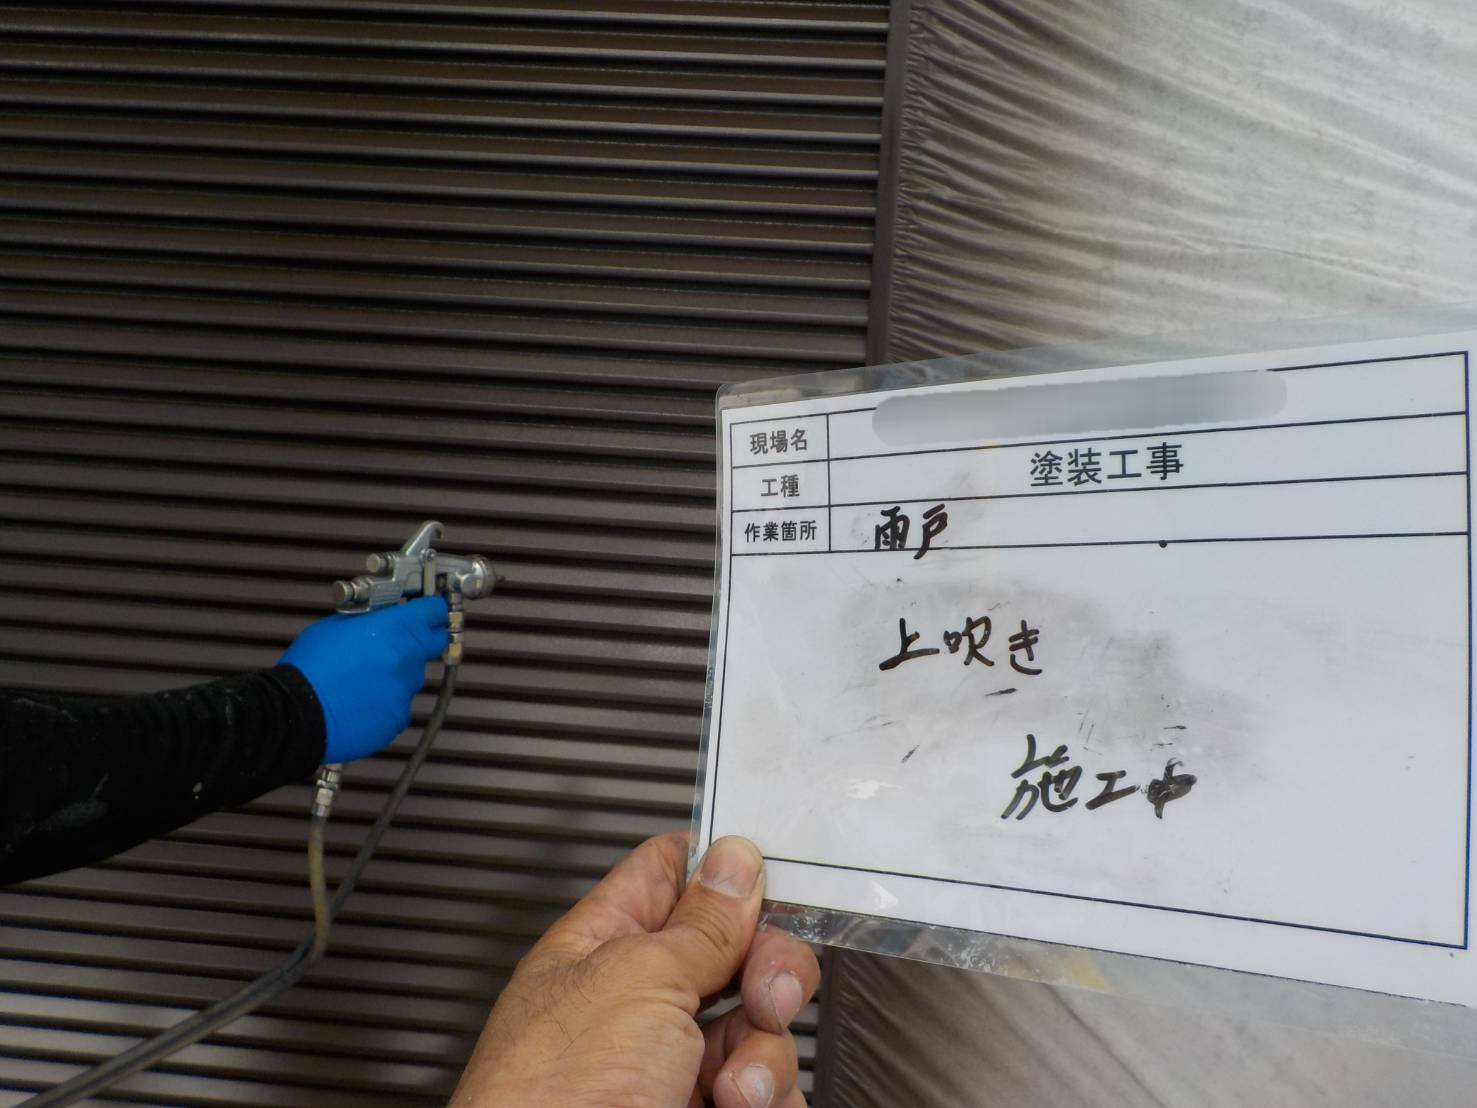 現場名
工種 塗装工事
作業箇所 雨戸
上吹き
施工中